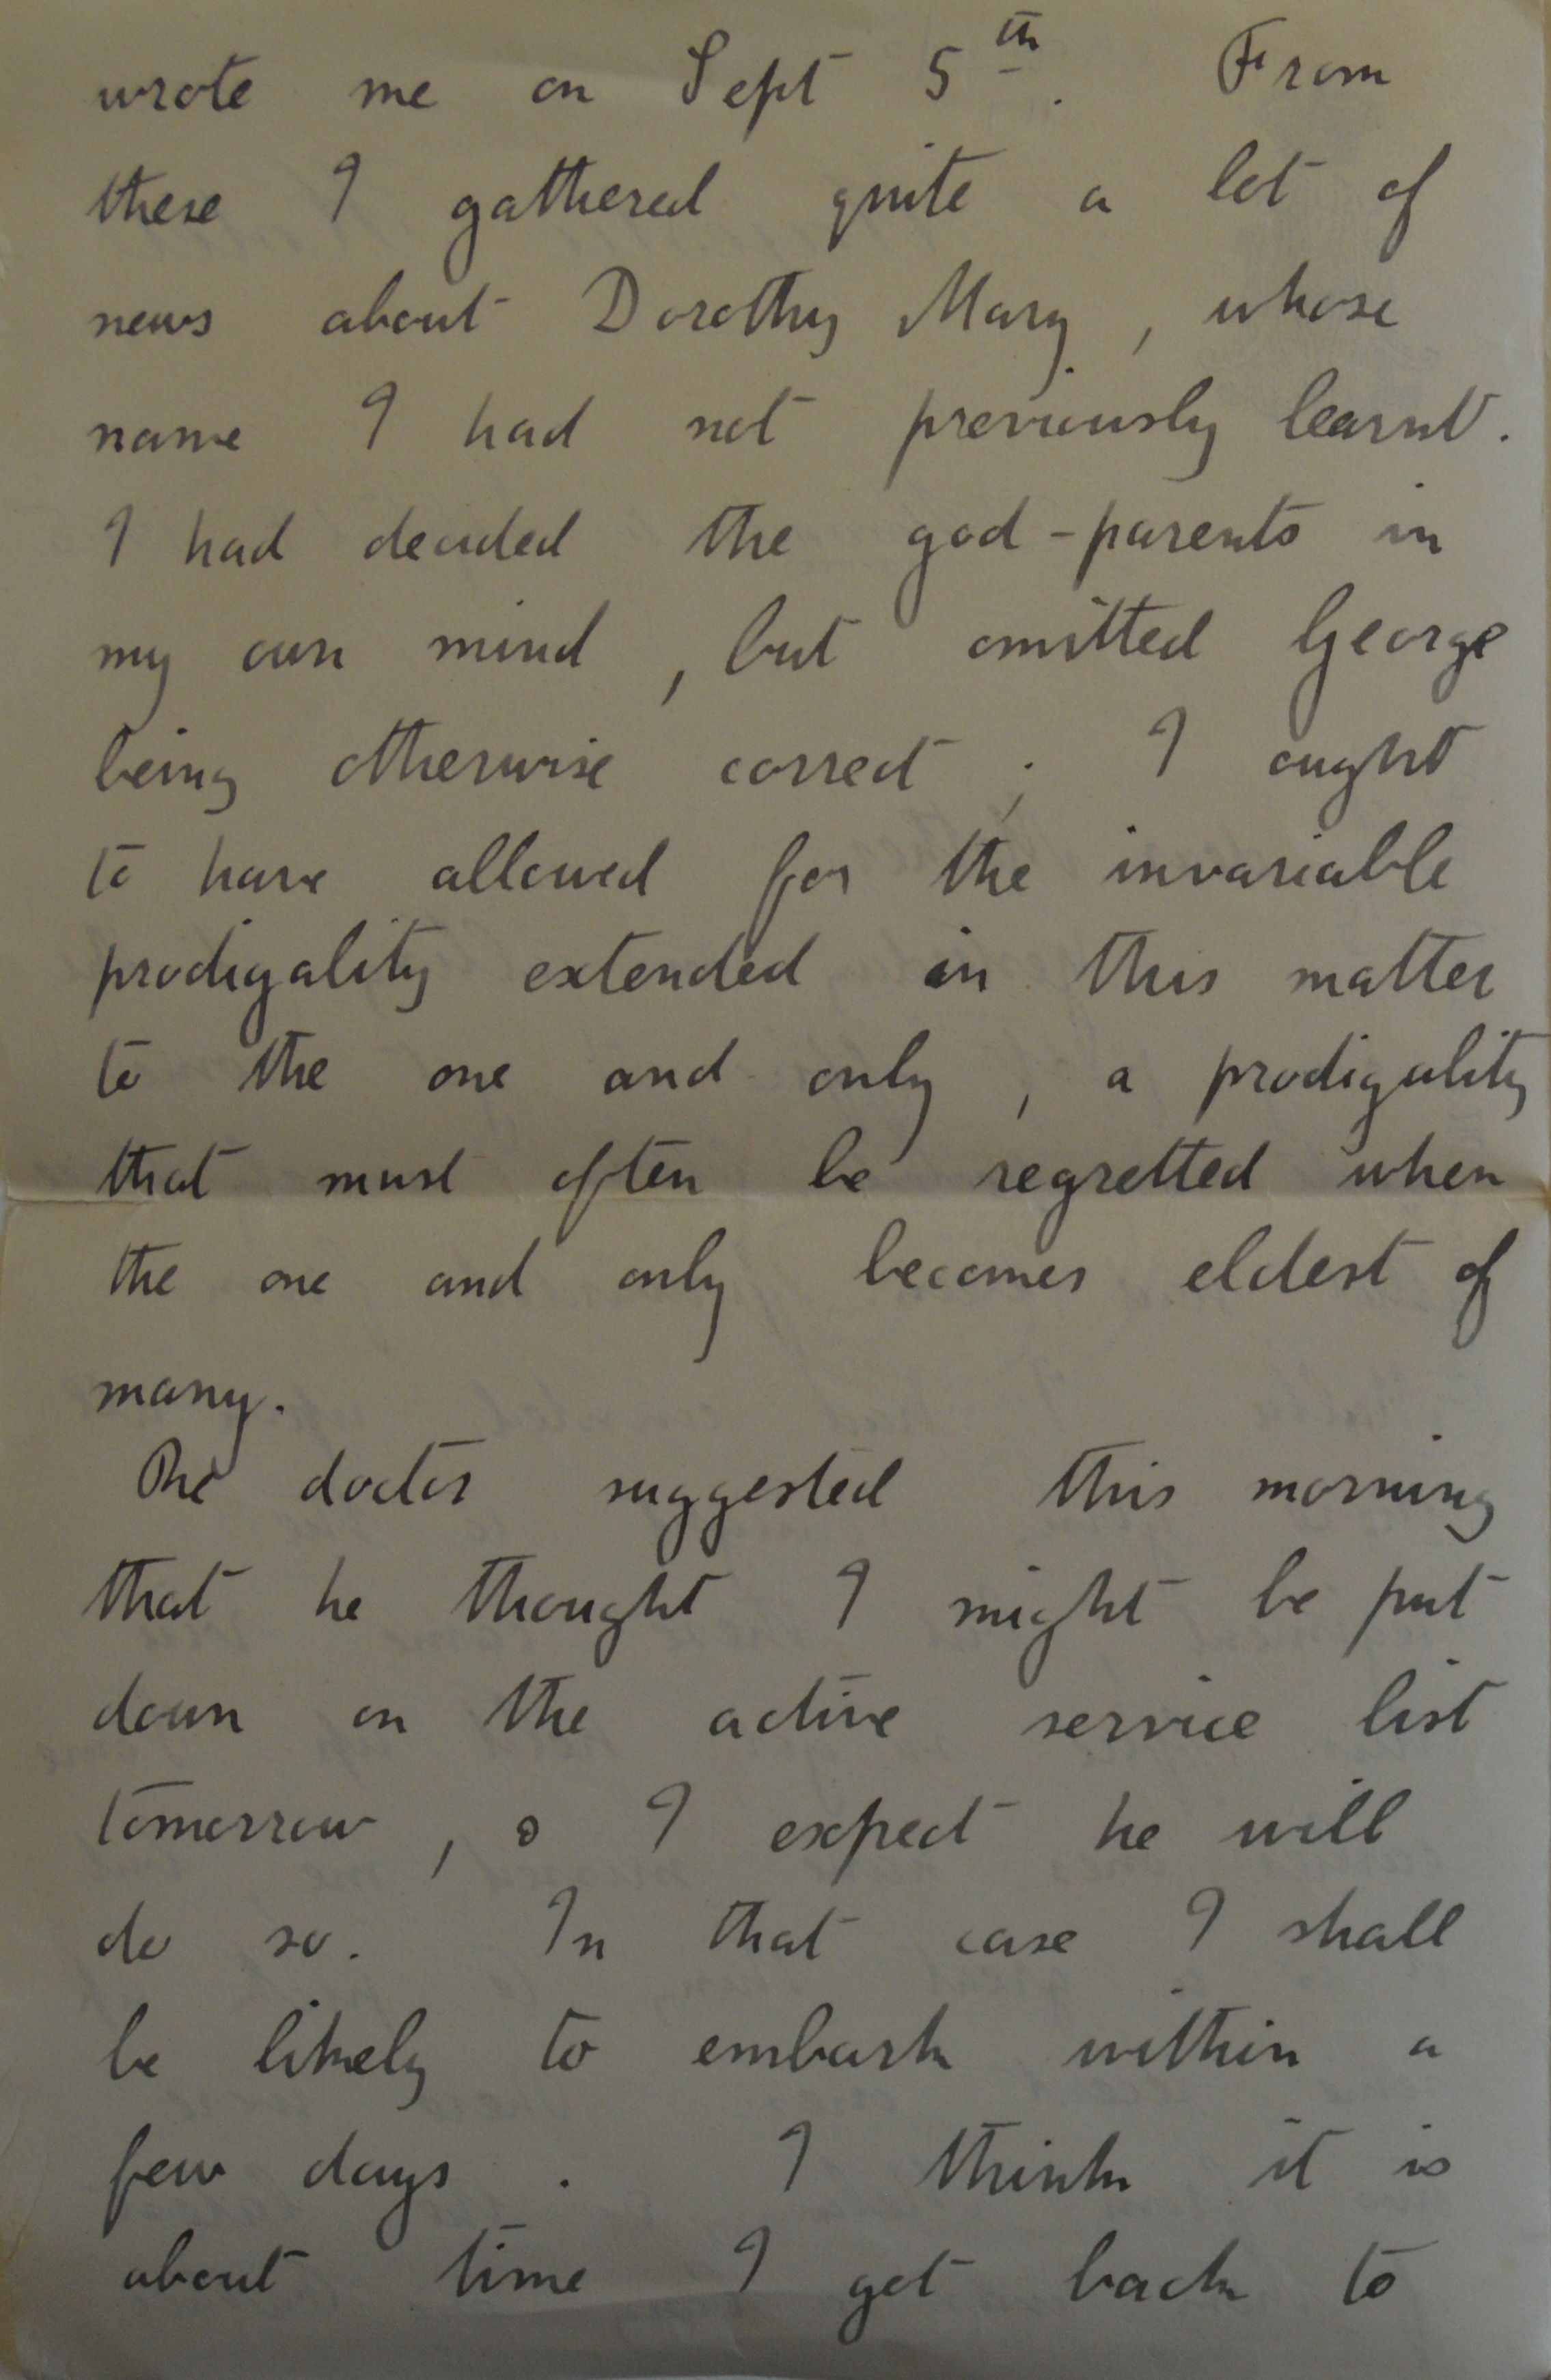 wrote me on Sept 5th. From
these I gathered quite a lot of
news about Dorothy Mary, whose
name I had not previously learnt.
I had decided the god-parents in
my own mind, but omitted George
being otherwise correct; I ought
to have allowed for the invariable
prodigality extended in this matter
to the one and only, a prodigality
that must often be regretted when
the one and only becomes eldest of
many.
The doctor suggested this morning
that he thought I might be put
down on the active service list
tomorrow, & I expect he will
do so. In that case I shall
be likely to embark within a
few days. I think it is
about time I get back to